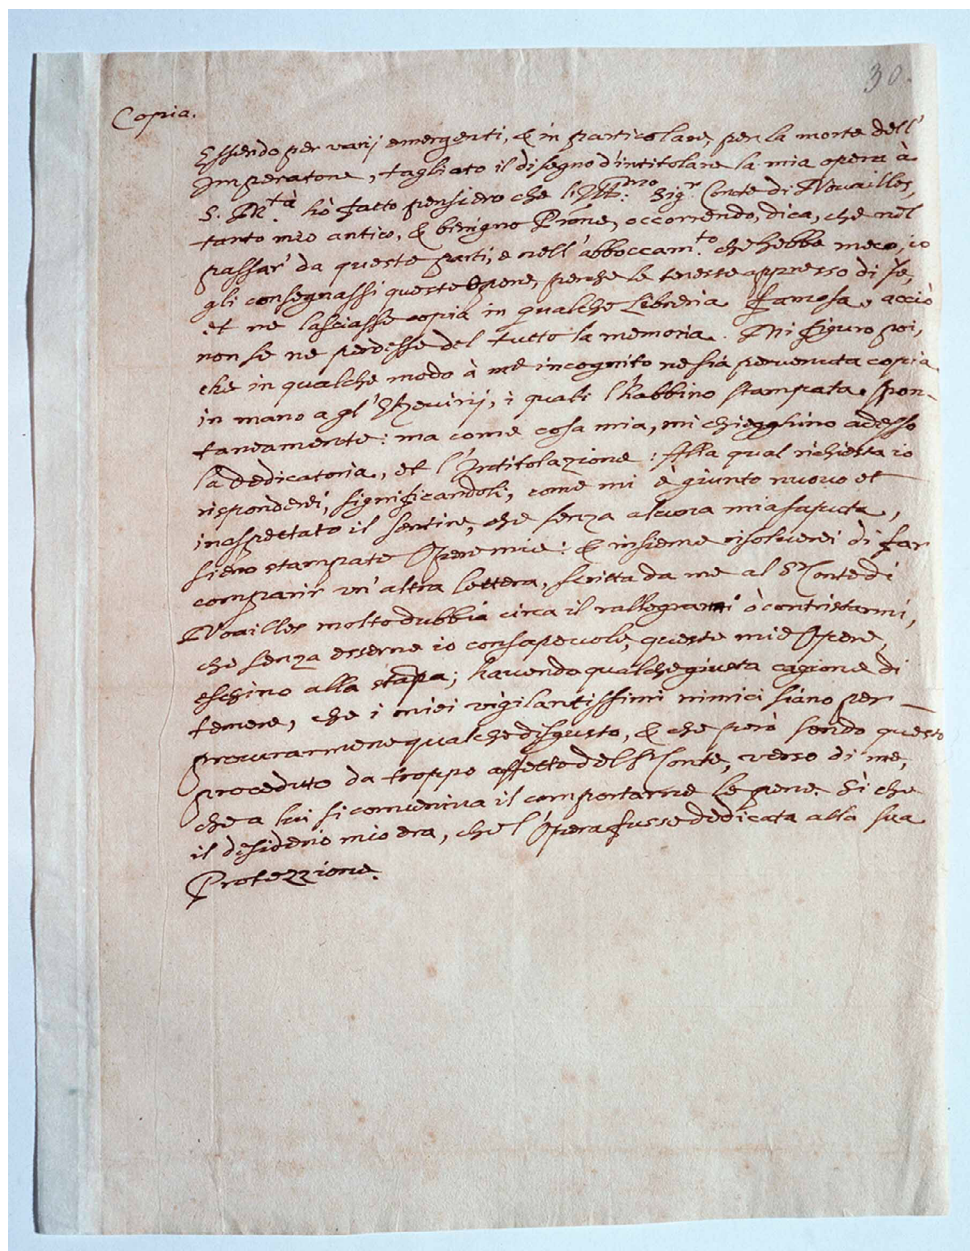 30.
Copia.
Essendo per varij emergenti, & in particolare, per la morte dell'
Imperatore, tagliato il disegno d'intitolare la mia opera à
S. M.tà hò fatto pensiero che l'Ill.mo Sig.r Conte di Novailles,
tanto mio antico, & benigno Prone, occorrendo, dica, che nel
passar' da queste parti, e nell'abboccam.to che hebbe meco, io
gli consegnassi queste Opere, perche le tenesse appresso di se,
et ne lasciasse copia in qualche Libreria famosa, acciò
non se ne perdesse del tutto la memoria. Mi figuro poi,
che in qualche modo à me incognito ne sia pervenuta copia
in mano a gl'Elzevirij, i quali l'habbino stampata spon-
taneamente: ma come cosa mia, mi chiegghino adesso
la dedicatoria, et l'Intitolazione: Alla qual richiesta io
risponderei, significandoli, come mi è giunto nuovo et
inaspettato il sentire, che senza alcuna mia saputa,
sieno stampate Opere mie: & insieme risolverei di far
comparir un'altra lettera, scritta da me al S.r Conte di
Noailles molto dubbia circa il rallegrarmi ò contristarmi,
che senza esserne io consapevole, queste mie Opere,
eschino alla stāpa; havendo qualche giusta cagione di
temere, che i miei vigilantissimi nimici siano per
procurarmene qualche disgusto, & che però sendo questo
proceduto da troppo affetto del S.r Conte, verso di me,
che a lui si conveniva il comportarne le pene. Si che
il desiderio mio era, che l'Opera fusse dedicata alla sua
Protezzione.